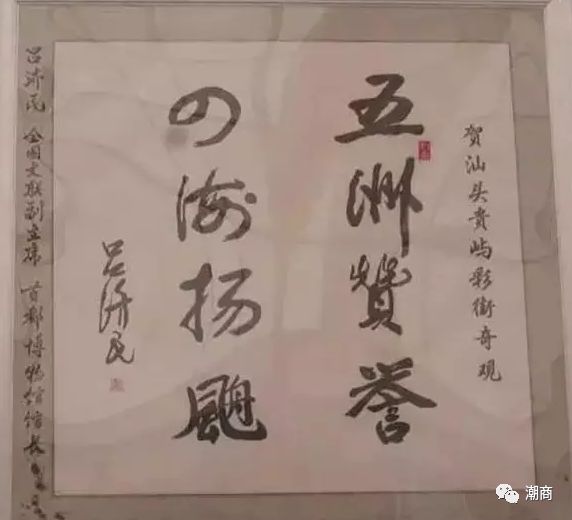 贺汕头贵屿彩街奇观
五洲贊誉
四海扬
吕济民
吕济民 全国文联副主席 首都博物馆馆长
潮商